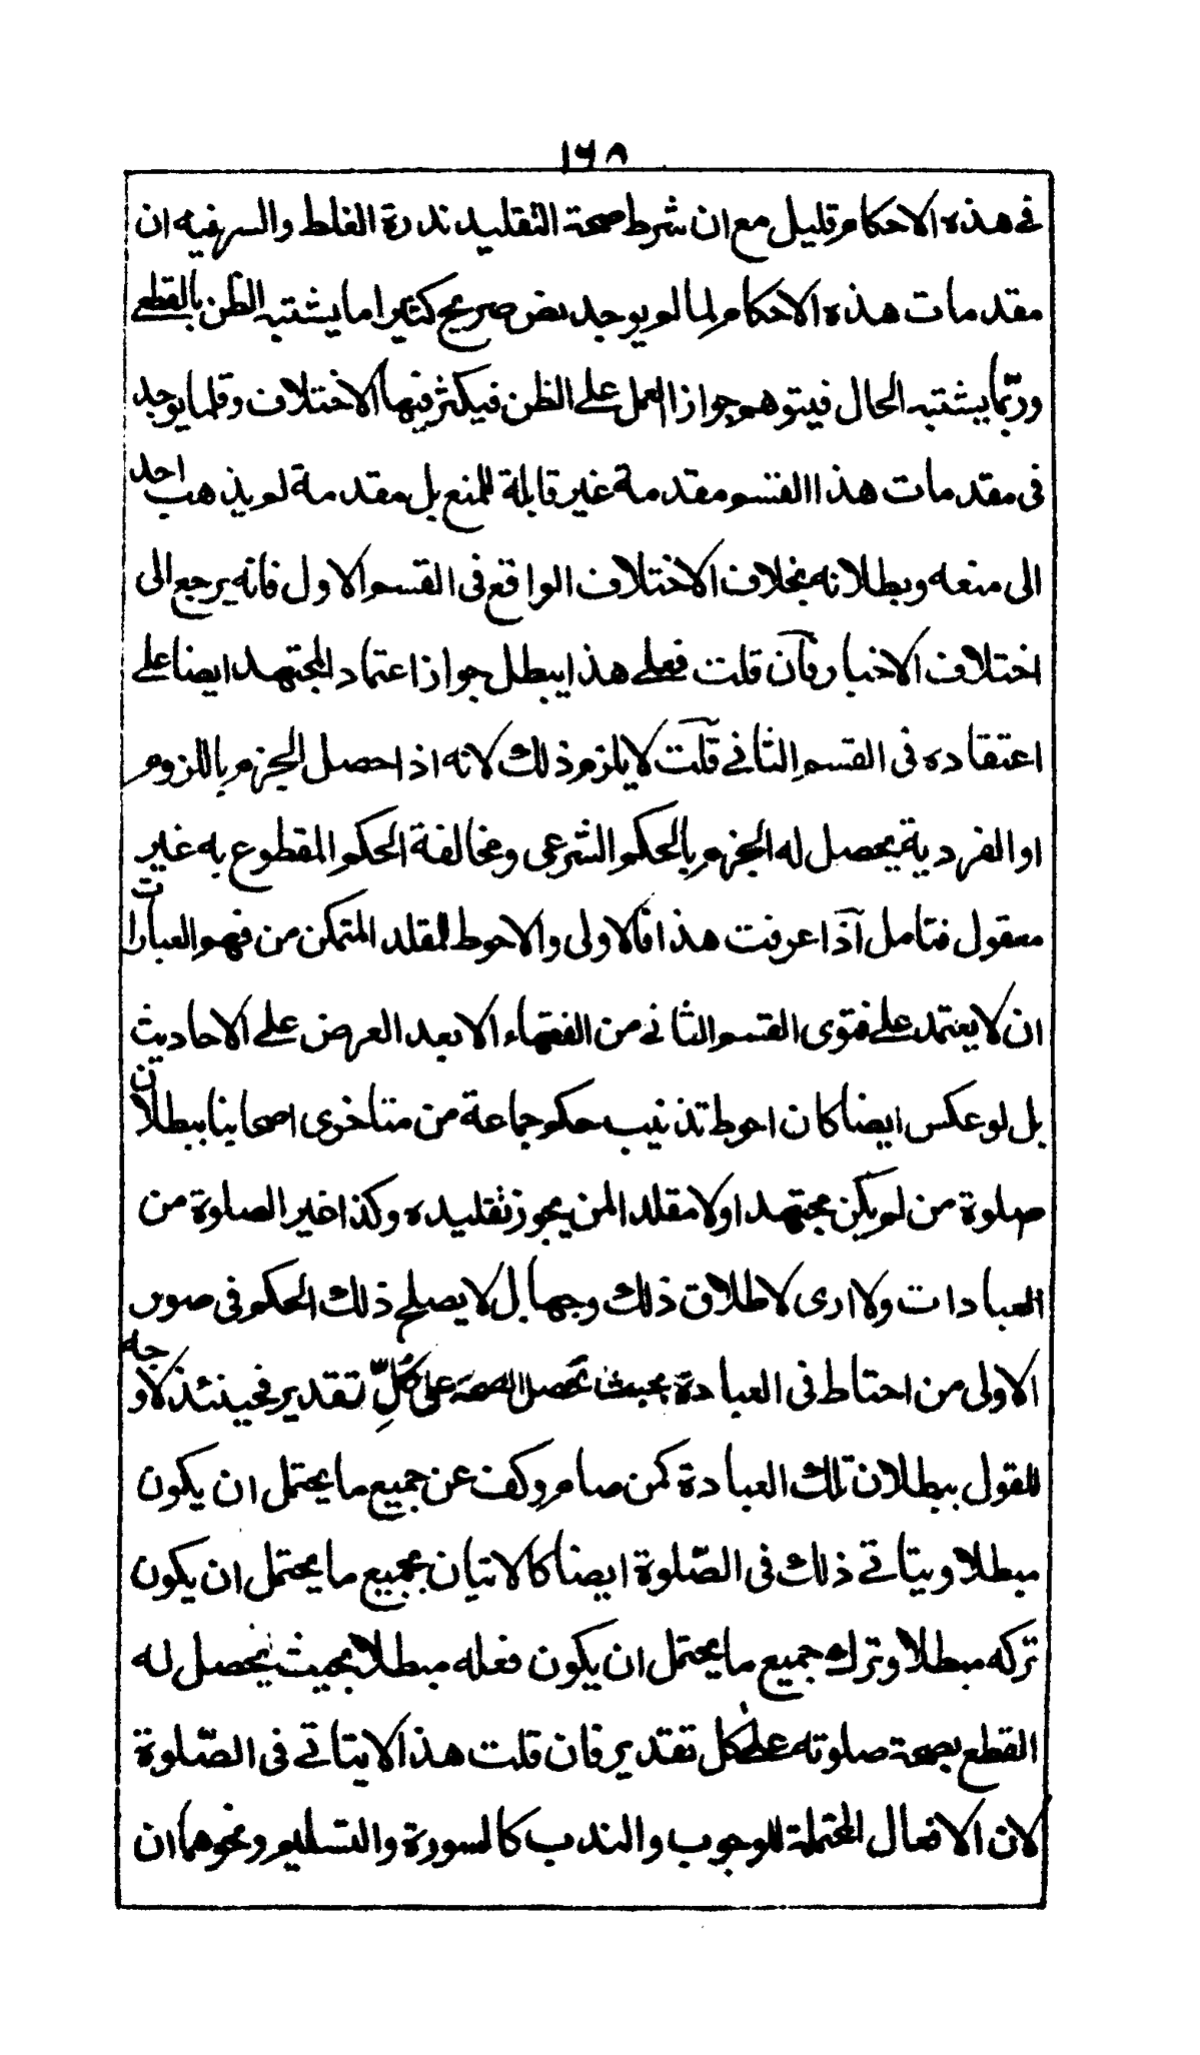 ١٦٨
في هذه الاحكام قليل مع ان شرط صحة التقليد ندرة الغلط والسرفيه ان
مقدمات هذه الاحكام لما لم يوجد نص صريح كثيرا ما يشتبه الظن بالقطع
وربّما يشتبه الحال فيتوهم جواز العمل على الظن فيكثر فيها الاختلاف وقلما يوجد
فى مقدمات هذا القسم مقدمة غير قابلة للمنع بل مقدمة لم يذهب احد
الى منعه وبطلانه بخلاف الاختلاف الواقع فى القسم الاول فانه يرجع الى
اختلاف الاخبار فآن قلت فعلى هذا يبطل جواز اعتماد المجتهد ايضا على
اعتقاده فى القسم الثاني قلت لا يلزم ذلك لانه اذا حصل الجزم باللزوم
او الفردية يحصل له الجزم بالحكم الشرعى ومخالفة الحكم المقطوع به غير
معقول فتامل آذا عرفت هذا فالاولى والاحوط للمقلد المتمكن من فهم العبارات
ان لا يعتمد على فتوى القسم الثاني من الفقهاء الا بعد العرض على الاحاديث
بل لو عكس ايضا كان احوط تذنيب حكم جماعة من متاخرى اصحابنا ببطلان
صلوة من لم يكن مجتهدا ولا مقلدا لمن يجوز تقليده وكذا غير الصلوة من
العبادات ولا ارى لاطلاق ذلك وجها بل لا يصلح ذلك الحكم فى صور
الاولى من احتاط فى العبادة بحيث تحصل الصحة على كُلِّ تقدير فحينئذ لا وجه
للقول ببطلان تلك العبادة كمن صام وكف عن جميع ما يحتمل ان يكون
مبطلا ويتاتى ذلك فى الصّلوة ايضا كالاتيان بجميع ما يحتمل ان يكون
تركه مبطلا وترك جميع ما يحتمل ان يكون فعله مبطلا بحيث يحصل له
القطع بصحة صلوته على كل تقدير فان قلت هذا لا يتاتى فى الصّلوة
لان الافعال المحتملة للوجوب والندب كالسورة والتسليم ونحوهما ان